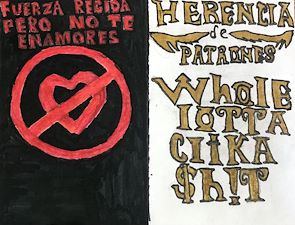 FUERZA REGIDA
PERO NO TE
ENAMORES
HERENCIA
de
PATRONES
Whole
lOTTA
CliKA
$h!T